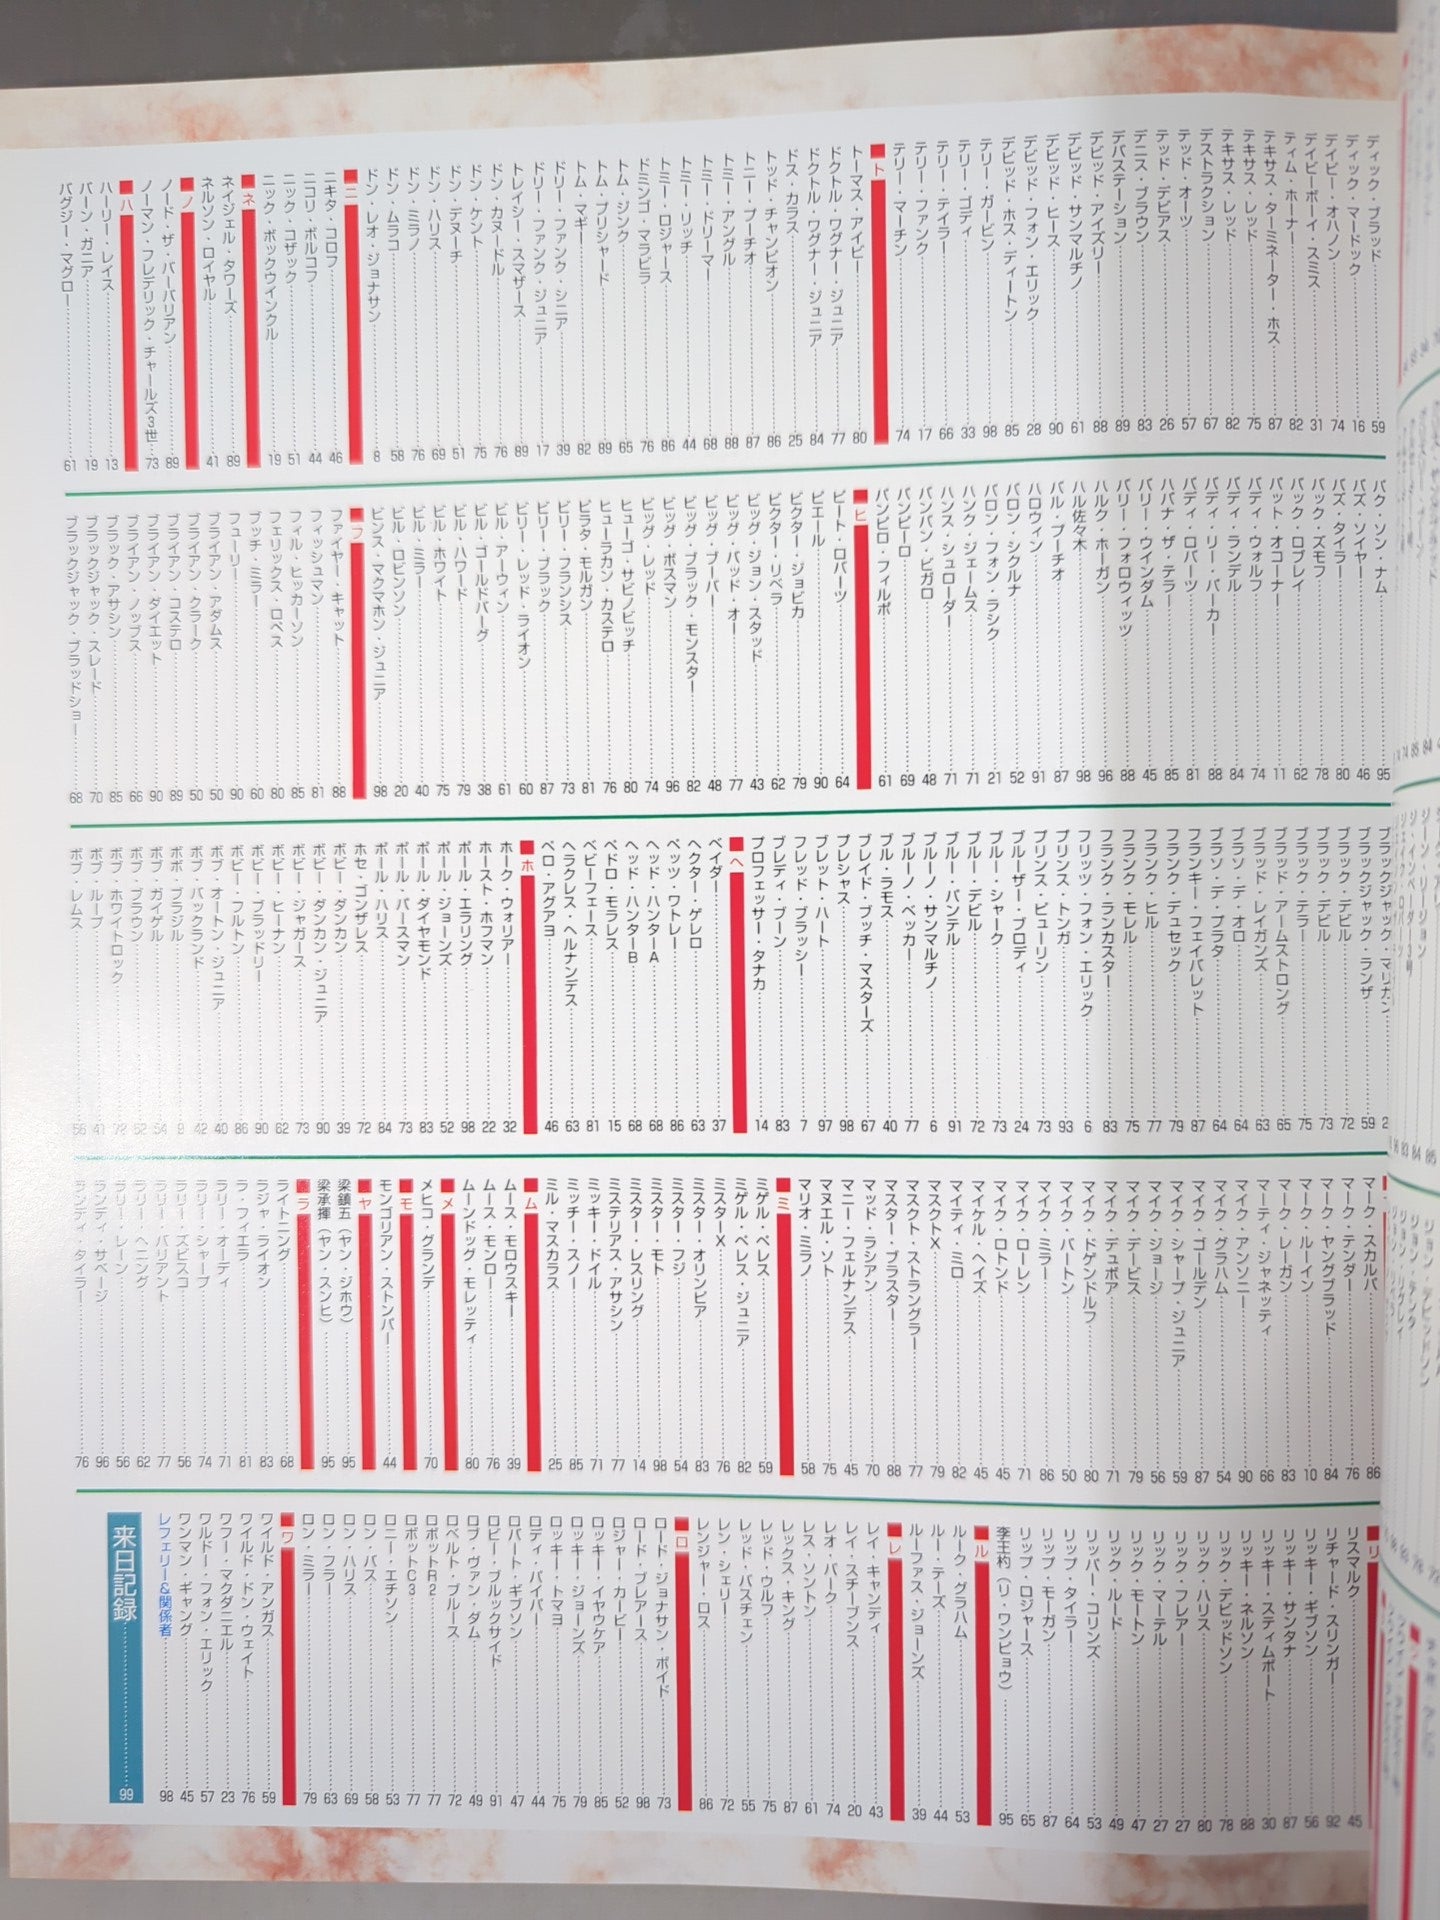 ディック・ブラッド 59
ディック・マードック 16
デイビー・オハノン 74
デイビーボーイ・スミス 31
ティム・ホーナー 82
テキサス・ターミネーター・ホス 87
テキサス・レッド 75
テキサス・レッド 82
デストラクション 67
テッド・オーツ 57
テッド・デビアス 26
デニス・ブラウン 83
デバステーション 89
デビッド・アイズリー 88
デビッド・サンマルチノ 61
デビッド・ヒース 90
デビッド・フォン・エリック 28
デビッド・ホス・ディートン 85
テリー・ガービン 98
テリー・ゴディ 33
テリー・テイラー 66
テリー・ファンク 17
テリー・マーチン 74
■ト
トーマス・アイビー 80
ドクトル・ワグナー・ジュニア 77
ドクトル・ワグナー・ジュニア 84
ドス・カラス 25
トッド・チャンピオン 86
トニー・プーチオ 87
トミー・アングル 88
トミー・ドリーマー 68
トミー・リッチ 44
トミー・ロジャース 86
ドミンゴ・マラビラ 76
トム・ジンク 65
トム・プリシャード 89
トム・マギー 82
ドリー・ファンク・シニア 39
ドリー・ファンク・ジュニア 17
トレイシー・スマザース 89
ドン・カヌードル 76
ドン・ケント 75
ドン・デヌーチ 51
ドン・ハリス 69
ドン・ミラノ 76
ドン・ムラコ 58
ドン・レオ・ジョナサン 8
■ニ
ニキタ・コロフ 46
ニコリ・ボルコフ 44
ニック・コザック 51
ニック・ボックウインクル 19
■ネ
ネイジェル・タワーズ 89
ネルソン・ロイヤル 41
■ノ
ノード・ザ・バーバリアン 89
ノーマン・フレデリック・チャールズ3世 73
■ハ
ハーリー・レイス 13
バーン・ガニア 19
バグジー・マグロー 61
パク・ソン・ナム 95
バズ・ソイヤー 46
バズ・タイラー 80
バック・ズモフ 78
バック・ロブレイ 62
パット・オコーナー 11
バディ・ウォルフ 74
バディ・ランデル 84
バディ・リー・パーカー 88
バディ・ロバーツ 81
ハバナ・ザ・テラー 85
バリー・ウインダム 45
バリー・フォロウィッツ 88
ハルク・ホーガン 96
ハル佐々木 98
バル・プーチオ 87
ハロウィン 91
バロン・シクルナ 52
バロン・フォン・ラシク 21
ハンク・ジェームス 71
ハンス・シュローダー 71
バンバン・ビガロ 48
バンピーロ 69
バンピロ・フィルポ 61
■ヒ
ピート・ロバーツ 64
ピエール 90
ビクター・ジョビカ 79
ビクター・リベラ 62
ビッグ・ジョン・スタッド 43
ビッグ・バッド・オー 77
ビッグ・ブーバー 48
ビッグ・ブラック・モンスター 82
ビッグ・ボスマン 96
ビッグ・レッド 74
ヒューゴ・サビノビッチ 80
ヒューラカン・カステロ 76
ピラタ・モルガン 81
ビリー・フランシス 73
ビリー・ブラック 87
ビリー・レッド・ライオン 60
ビル・アーウィン 61
ビル・ゴールドバーグ 38
ビル・ハワード 79
ビル・ホワイト 75
ビル・ミラー 40
ビル・ロビンソン 20
ビンス・マクマホン・ジュニア 98
■フ
ファイヤー・キャット 88
フィッシュマン 81
フィル・ヒッカーソン 85
フェリックス・ロペス 80
ブッチ・ミラー 60
フューリー 90
ブライアン・アダムス 50
ブライアン・クラーク 50
ブライアン・コステロ 89
ブライアン・ダイエット 90
ブライアン・ノッブス 66
ブラック・アサシン 85
ブラックジャック・スレード 70
ブラックジャック・ブラッドショー 68
ブラックジャック・マリガン
ブラックジャック・ランザ 59
ブラック・デビル 72
ブラック・デビル 73
ブラック・テラー 75
ブラッド・アームストロング 65
ブラッド・レイガンズ 63
ブラソ・デ・オロ 64
ブラソ・デ・プラタ 64
フランキー・フェイバレット 87
フランク・デュセック 79
フランク・ヒル 77
フランク・モレル 75
フランク・ランカスター 83
フリッツ・フォン・エリック 6
プリンス・トンガ 93
プリンス・ピューリン 73
ブルーザー・ブロディ 24
ブルー・シャーク 73
ブルー・デビル 72
ブルー・パンテル 91
ブルーノ・サンマルチノ 6
ブルーノ・ベッカー 77
ブル・ラモス 40
ブレイド・ブッチ・マスターズ 67
プレシャス 98
ブレット・ハート 97
フレッド・ブラッシー 7
ブレディ・ブーン 83
プロフェッサー・タナカ 14
■ヘ
ベイダー 37
ヘクター・ゲレロ 63
ペッツ・ワトレー 86
ヘッド・ハンターA 68
ヘッド・ハンターB 68
ペドロ・モラレス 15
ベビーフェース 81
ヘラクレス・ヘルナンデス 63
ペロ・アグアヨ 46
■ホ
ホーク・ウォリアー 32
ホースト・ホフマン 22
ポール・エラリング 98
ポール・ジョーンズ 52
ポール・ダイヤモンド 83
ポール・バースマン 73
ポール・ハリス 84
ホセ・ゴンザレス 72
ボビー・ダンカン 39
ボビー・ダンカン・ジュニア 90
ボビー・ジャガース 73
ボビー・ヒーナン 62
ボビー・ブラッドリー 90
ボビー・フルトン 86
ボブ・オートン・ジュニア 40
ボブ・バックランド 42
ボボ・ブラジル 9
ボブ・ガイゲル 54
ボブ・ブラウン 52
ボブ・ホワイトロック 72
ボブ・ループ 41
ボブ・レムス 56
マーク・スカルパ 86
マーク・テンダー 76
マーク・ヤングブラッド 84
マーク・ルーイン 10
マーク・レーガン 83
マーティ・ジャネッティ 66
マイク・アンソニー 90
マイク・グラハム 54
マイク・ゴールデン 87
マイク・シャープ・ジュニア 59
マイク・ジョージ 56
マイク・デービス 79
マイク・デュポア 71
マイク・ドゲンドルフ 80
マイク・バートン 50
マイク・ミラー 86
マイク・ローレン 71
マイク・ロトンド 45
マイケル・ヘイズ 45
マイティ・ミロ 82
マスクトX 79
マスクト・ストラングラー 77
マスター・ブラスター 88
マッド・ラシアン 70
マニー・フェルナンデス 45
マヌエル・ソト 75
マリオ・ミラノ 58
■ミ
ミゲル・ペレス 59
ミゲル・ペレス・ジュニア 82
ミスターX 76
ミスター・オリンピア 83
ミスター・フジ 54
ミスター・モト 98
ミスター・レスリング 14
ミステリアス・アサシン 77
ミッキー・ドイル 71
ミッチー・スノー 85
ミル・マスカラス 25
■ム
ムース・モロウスキー 39
ムース・モンロー 76
ムーンドッグ・モレッティ 80
■メ
メヒコ・グランデ 70
■モ
モンゴリアン・ストンパー 44
■ヤ
梁鎮五(ヤン・ジホウ) 95
梁承揮(ヤン・スンヒ) 95
■ラ
ライトニング 68
ラジャ・ライオン 83
ラ・フィエラ 81
ラリー・オーディ 71
ラリー・シャープ 74
ラリー・ズビスコ 56
ラリー・バリアント 77
ラリー・ヘニング 62
ラリー・レーン 56
ランディ・サベージ 96
ランディ・タイラー 76
■リ
リスマルク 45
リチャード・スリンガー 92
リッキー・ギブソン 56
リッキー・サンタナ 87
リッキー・スティムボート 30
リッキー・ネルソン 88
リック・デビッドソン 78
リック・ハリス 80
リック・フレアー 27
リック・マーテル 27
リック・モートン 47
リック・ルード 49
リッパー・コリンズ 53
リップ・タイラー 64
リップ・モーガン 87
リップ・ロジャース 65
李王杓(リ・ワンピョウ) 95
■ル
ルーク・グラハム 53
ルー・テーズ 44
ルーファス・ジョーンズ 39
■レ
レイ・キャンディ 43
レイ・スチーブンス 20
レオ・バーク 74
レス・ソントン 61
レックス・キング 87
レッド・ウルフ 75
レッド・バスチェン 55
レン・シェリー 72
レンジャー・ロス 86
■ロ
ロード・ジョナサン・ボイド 73
ロード・ブレアース 98
ロジャー・カービー 52
ロッキー・イヤウケア 85
ロッキー・ジョーンズ 79
ロッキー・トマヨ 75
ロディ・パイパー 44
ロバート・ギブソン 47
ロビー・ブルックサイド 91
ロブ・ヴァン・ダム 49
ロベルト・ブルース 72
ロボットR2 77
ロボットC3 77
ロニー・エチソン 53
ロン・バス 58
ロン・ハリス 69
ロン・フラー 63
ロン・ミラー 79
■ワ
ワイルド・アンガス 59
ワイルド・ドン・ウェイト 76
ワフー・マクダニエル 23
ワルドー・フォン・エリック 57
ワンマン・ギャング 45
レフェリー&関係者 98
来日記録 99